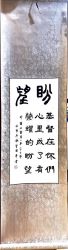 盼望
基督在你們
心裏成了有
榮耀的盼望